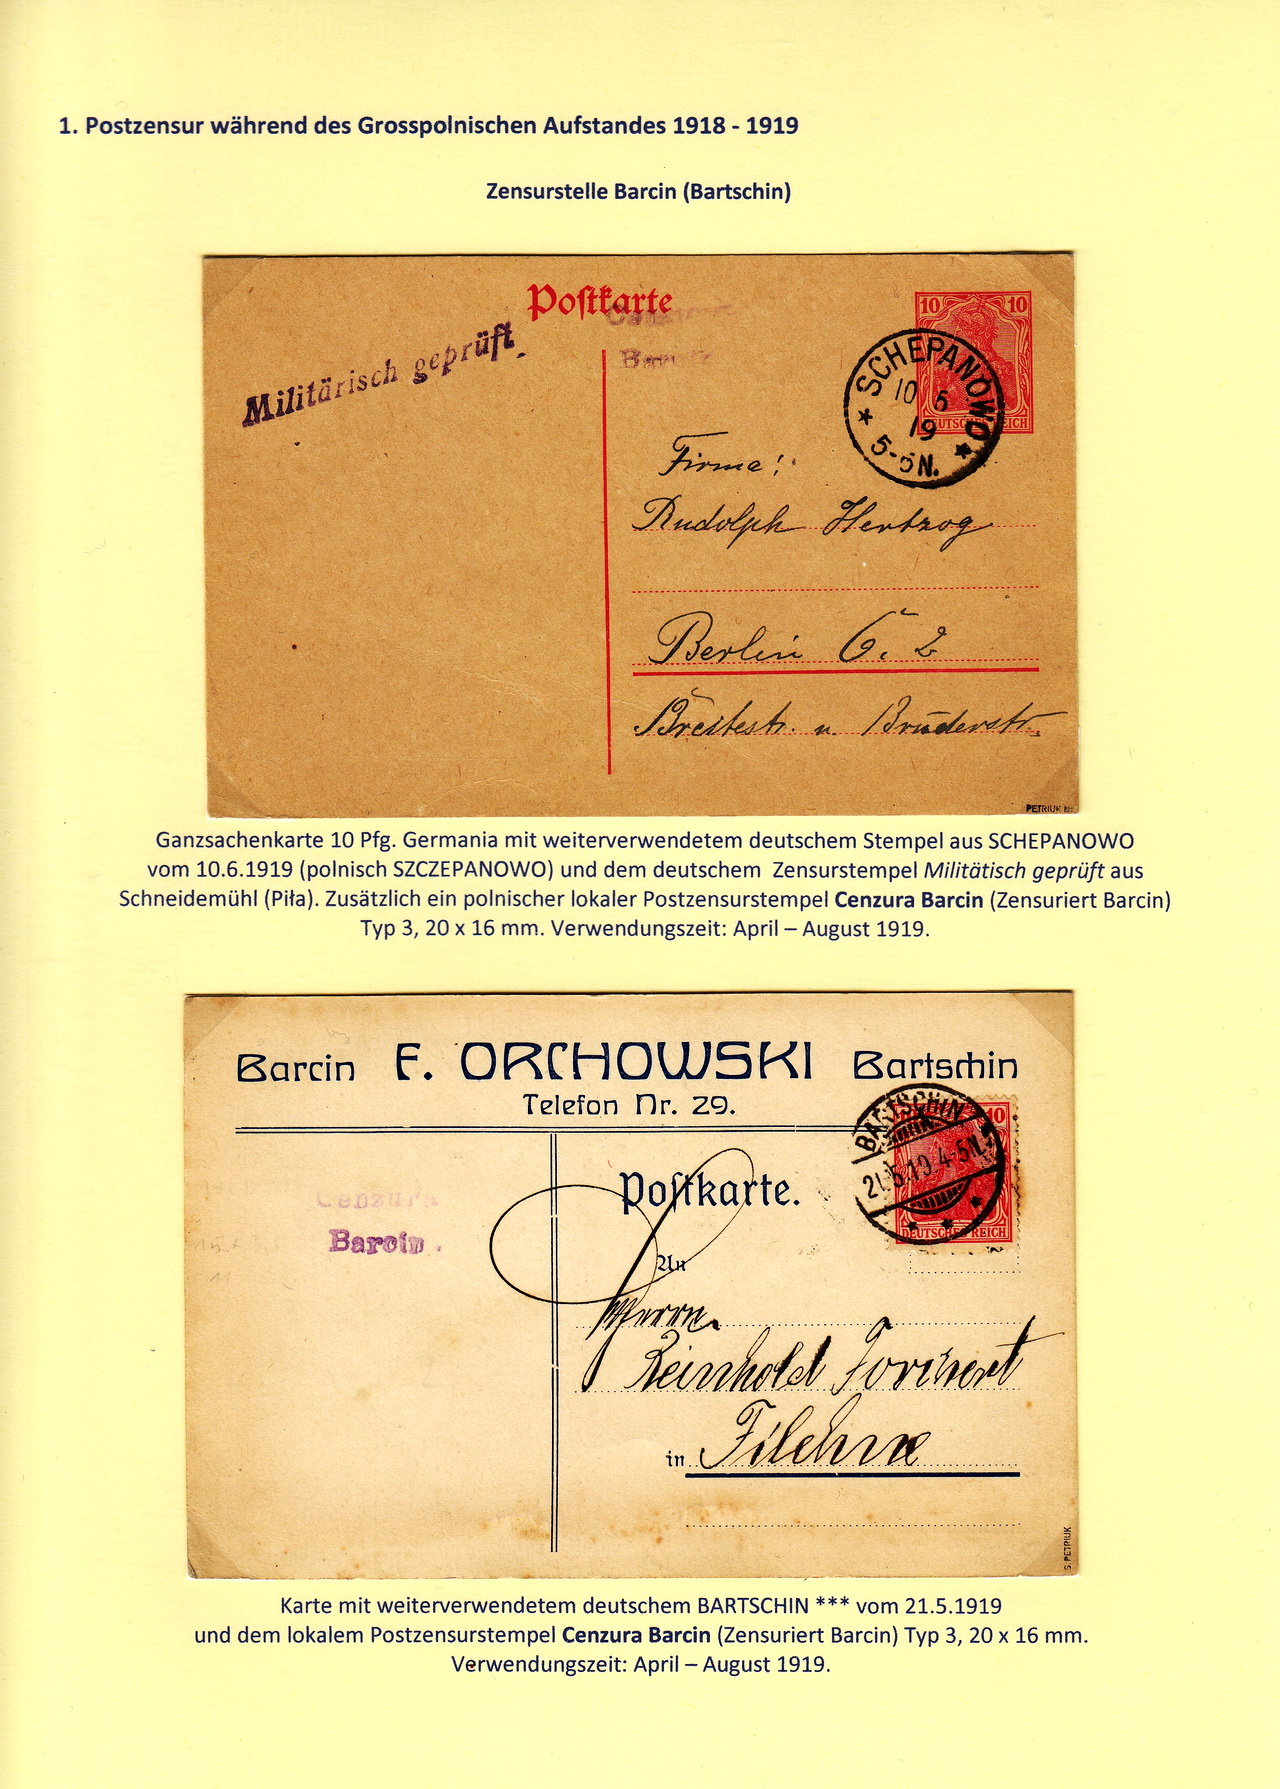 1. Postzensur während des Grosspolnischen Aufstandes 1918 - 1919
Zensurstelle Barcin (Bartschin)
Postkarte
Militärisch geprüft
10 10
SCHEPANOWO
19
5-6N.
Firma:
Rudolph Hertzog
Berlin C. 2
Breitestr. u. Brüderstr.
PETRIUK
Ganzsachenkarte 10 Pfg. Germania mit weiterverwendetem deutschem Stempel aus SCHEPANOWO
vom 10.6.1919 (polnisch SZCZEPANOWO) und dem deutschem Zensurstempel Militätisch geprüft aus
Schneidemühl (Piła). Zusätzlich ein polnischer lokaler Postzensurstempel Cenzura Barcin (Zensuriert Barcin)
Typ 3, 20 x 16 mm. Verwendungszeit: April – August 1919.
Barcin F. ORCHOWSKI Bartschin
Telefon Nr. 29.
BARTSCHIN
10
21.5.19.4-5N.
DEUTSCHES REICH
Postkarte.
Cenzura
Barcin.
An
Herrn
Reinhold
in Filehne
S. PETRIUK
Karte mit weiterverwendetem deutschem BARTSCHIN *** vom 21.5.1919
und dem lokalem Postzensurstempel Cenzura Barcin (Zensuriert Barcin) Typ 3, 20 x 16 mm.
Verwendungszeit: April – August 1919.